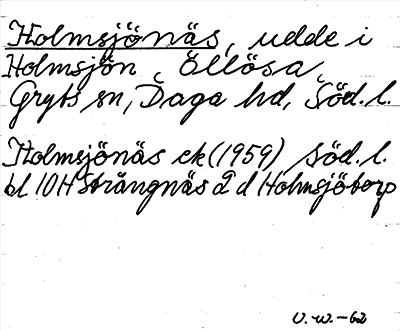 Holmsjönäs, udde i
Holmsjön, Öllösa,
Gryts sn, Daga hd, Söd. l.
Holmsjönäs ek (1959) Söd. l.
bl 10H Strängnäs 2 d Holmsjötorp
U.W.-62